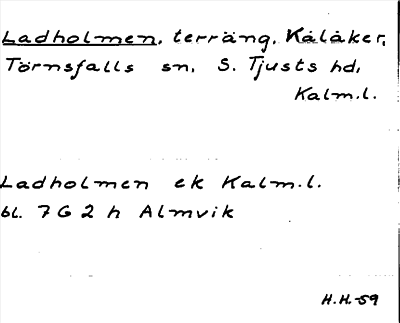 Ladholmen, terräng, Kålåker,
Törnsfalls sn, S. Tjusts hd,
Kalm.l.
Ladholmen ek Kalm.l.
bl. 7G2h Almvik
H.H.-59